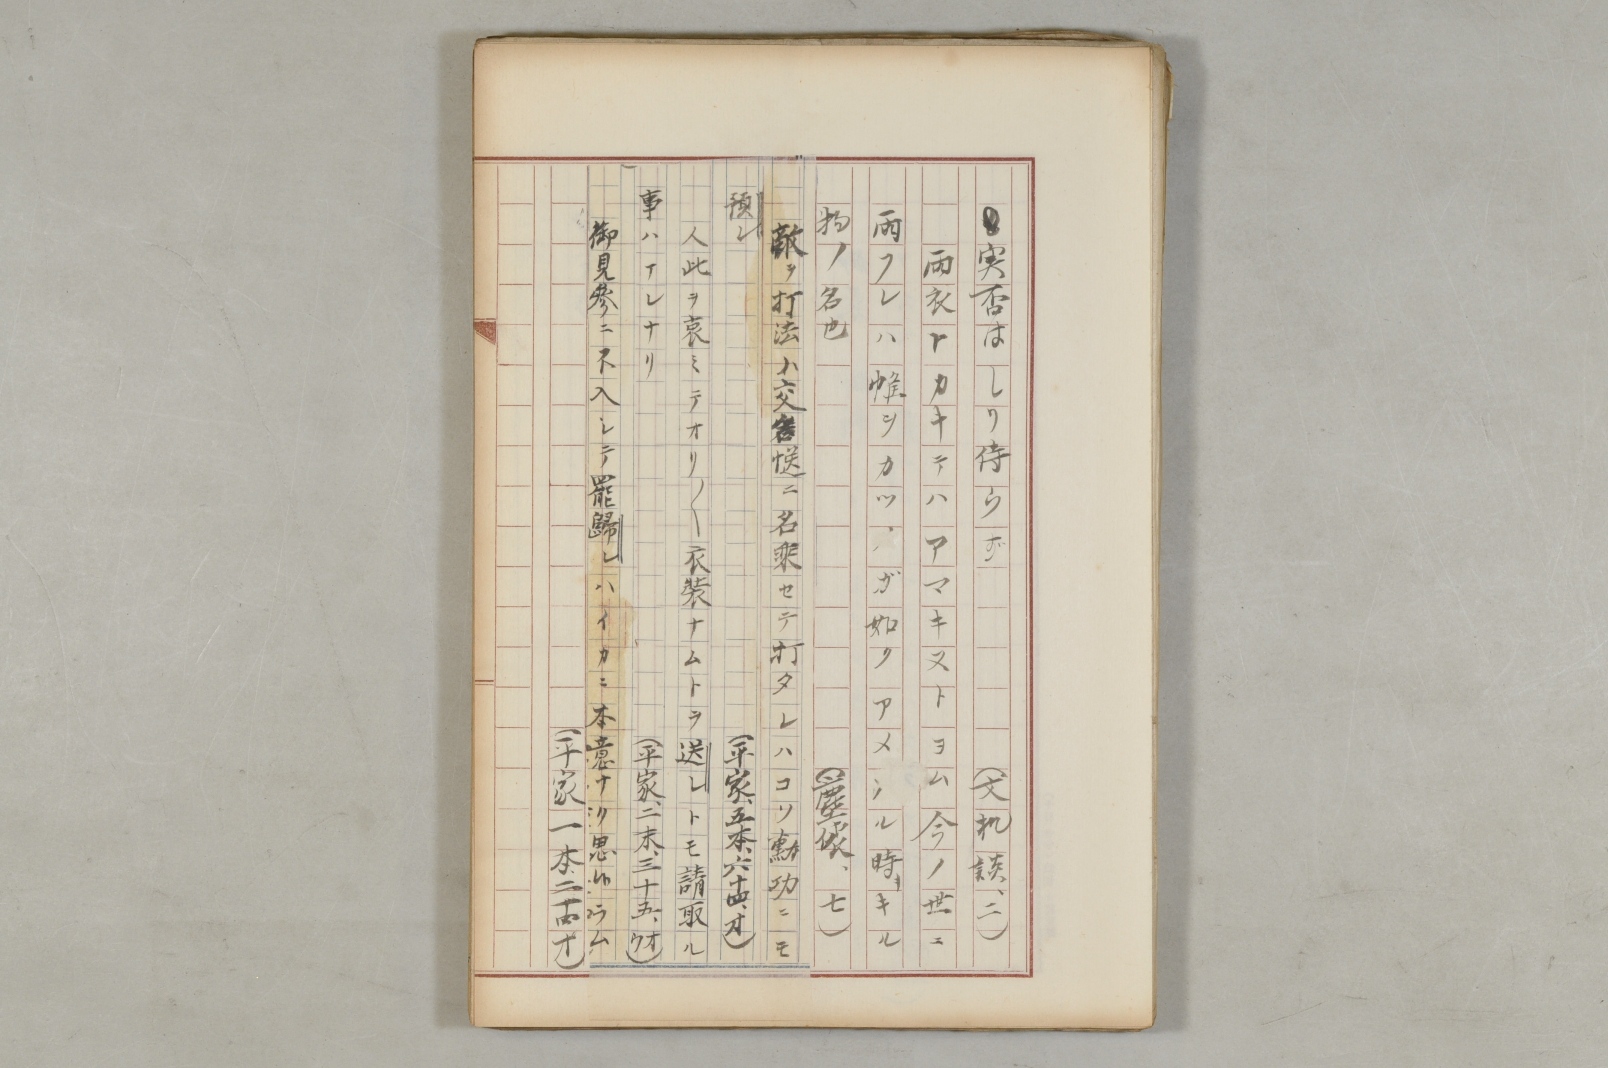 実否はしり侍らず
（文机談、二）
雨衣トカキテハアマキヌトヨム今ノ世ニ
雨フレハ帷ヲカツ、ガ如クアメノル時キル
物ノ名也
（塵袋、七）
敵ヲ打法ハ交名慥ニ名乗セテ打タレハコソ勲功ニモ
預レ
（平家、五本、六十四、オ）
人此ヲ哀ミテオリ〳〵衣装ナムトヲ送レトモ請取ル
事ハナレナリ
（平家、二末、三十五、ウオ）
御見参ニ不入シテ罷歸レハイカニ本意ナク思ハラム
（平家一本、二十四オ）